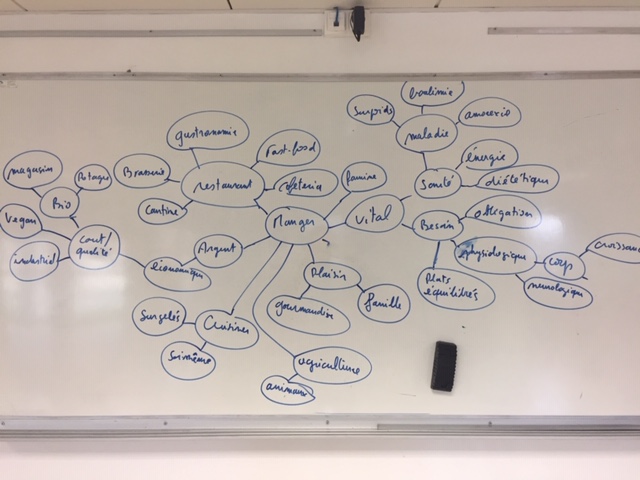 boulimie
surpoids
anorexie
maladie
gastronomie
Fast-food
énergie
magasin
Potager
Brasserie
restaurant
cafeteria
famine
Santé
diététique
Bio
Cantine
Manger
Vital
Besoin
obligation
Vegan
cout/
qualité
Argent
physiologique
corps
croissance
industriel
économique
Plaisir
Plats
équilibrés
neurologique
gourmandise
famille
Surgelés
Cuisiner
Soi même
agriculture
animaux